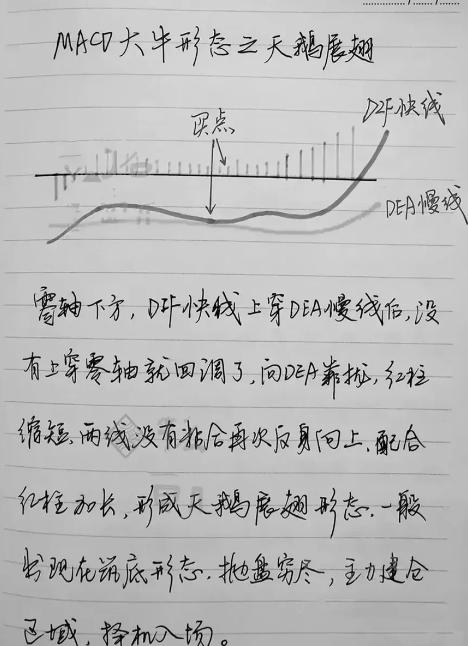 MACD大牛形态之天鹅展翅
买点
DIF快线
DEA慢线
零轴下方，DIF快线上穿DEA慢线后，没
有上穿零轴就回调了，向DEA靠拢，红柱
缩短，两线没有粘合再次反身向上，配合
红柱加长，形成天鹅展翅形态.一般
出现在筑底形态.抛盘穷尽，主力建仓
区域，择机入场。